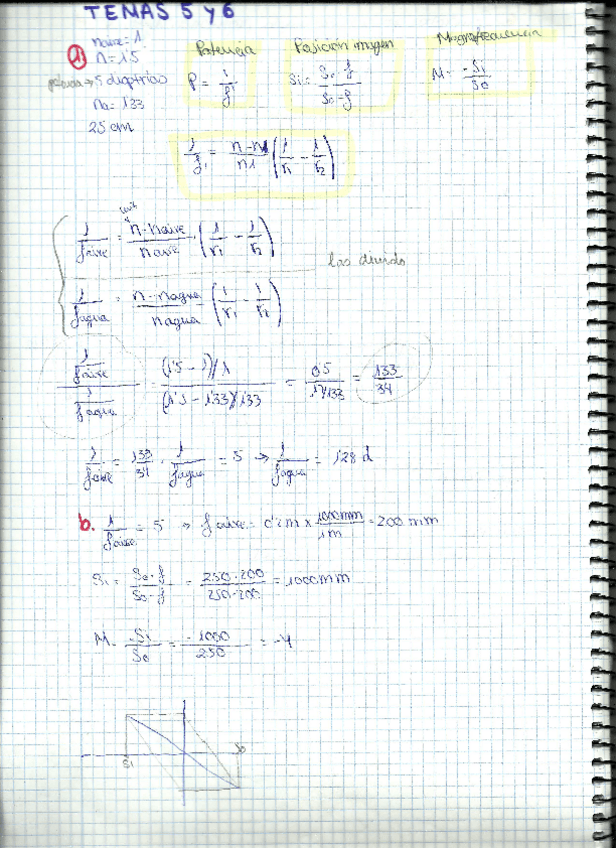 TEMAS 5 y 6
1. naire = 1
n = 1'5
potencia → 5 dioptrias
na = 1'33
25 cm
Potencia
P = 1/f
Posición imagen
Si = So · f / So - f
Magnificación
M = -Si/So
1/f1 = n - n1 / n1 (1/r1 - 1/r2)
1/faire = n - naire / naire · (1/r1 - 1/r2)
las divido
1/fagua = n - nagua / nagua (1/r1 - 1/r2)
(1/faire) / (1/fagua) = (1'5 - 1)/1 / (1'5 - 1'33)/1'33 = 0'5 / 17/133 = 133/34
1/faire = 133/34 · 1/fagua = 5 → 1/fagua = 1'28 d
b. 1/faire = 5 → faire = 0'2 m x 1000mm/1m = 200 mm
Si = So · f / So - f = 250 · 200 / 250 - 200 = 1000mm
M = -Si/So = -1000/250 = -4
Si
So